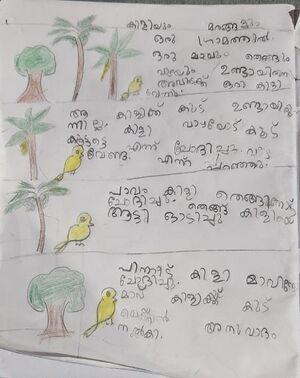 കിളിയും മരങ്ങളും
ഒരു ഗ്രാമത്തിൽ
ഒരു മാവും തെങ്ങും
വാഴയും ഉണ്ടായിരുന്നു
അവിടേക്ക് ഒരു കിളി
വന്നു
ആ കിളിക്ക് കൂട് ഉണ്ടായിരു
ന്നില്ല. കിളി വാഴയോട് കൂട്
കൂട്ടട്ടെ എന്ന് ചോദിച്ചു. വാഴ
വേണ്ട എന്ന് പറഞ്ഞു.
പാവം കിളി തെങ്ങിനോട്
ചോദിച്ചു. തെങ്ങ് കിളിയെ
ആട്ടി ഓടിച്ചു
പിന്നീട് കിളി മാവിനോട്
ചോദിച്ചു.
മാവ് കിളിക്ക് കൂട്
വെക്കാൻ അനുവാദം
നൽകി.